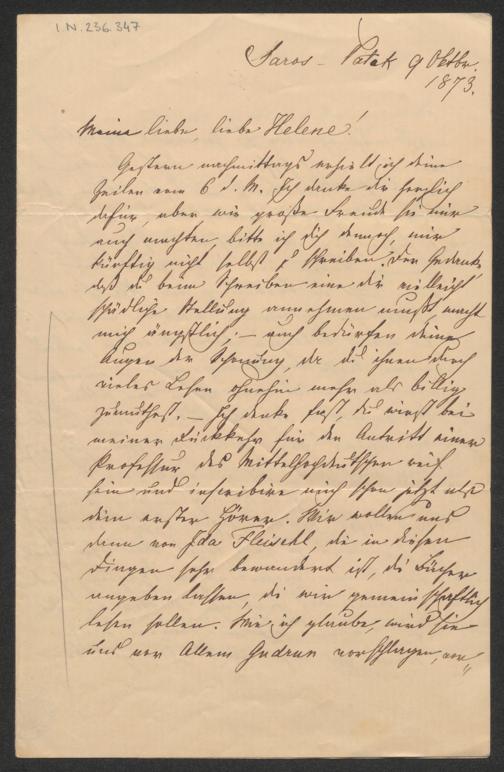 I.N. 236.347
Saros-Patak 9 Oktbr.
1873.
Meine liebe, liebe Helene!
Gestern nachmittags erhielt ich deine
Zeilen vom 6 d. M. Ich danke dir herzlich
dafür, aber wie große Freude sie mir
auch machten, bitte ich dich dennoch, mir
künftig nicht selbst zu schreiben. Der Gedanke
daß du beim Schreiben eine dir vielleicht
schädliche Stellung annehmen mußt macht
mich ängstlich; – auch bedürfen deine
Augen der Schonung, da du ihnen durch
vieles Lesen ohnehin mehr als billig
zumuthest. – Ich denke fast, du wirst bei
meiner Rückkehr für den Antritt einer
Professur des Mittelhochdeutschen reif
sein und inscribire mich schon jetzt als
dein erster Hörer. Wir wollen uns
dann von Ida Fleischl, die in diesen
Dingen sehr bewandert ist, die Bücher
angeben lassen, die wir gemeinschaftlich
lesen sollen. Wie ich glaube, wird sie
uns vor Allem Gudrun vorschlagen, von